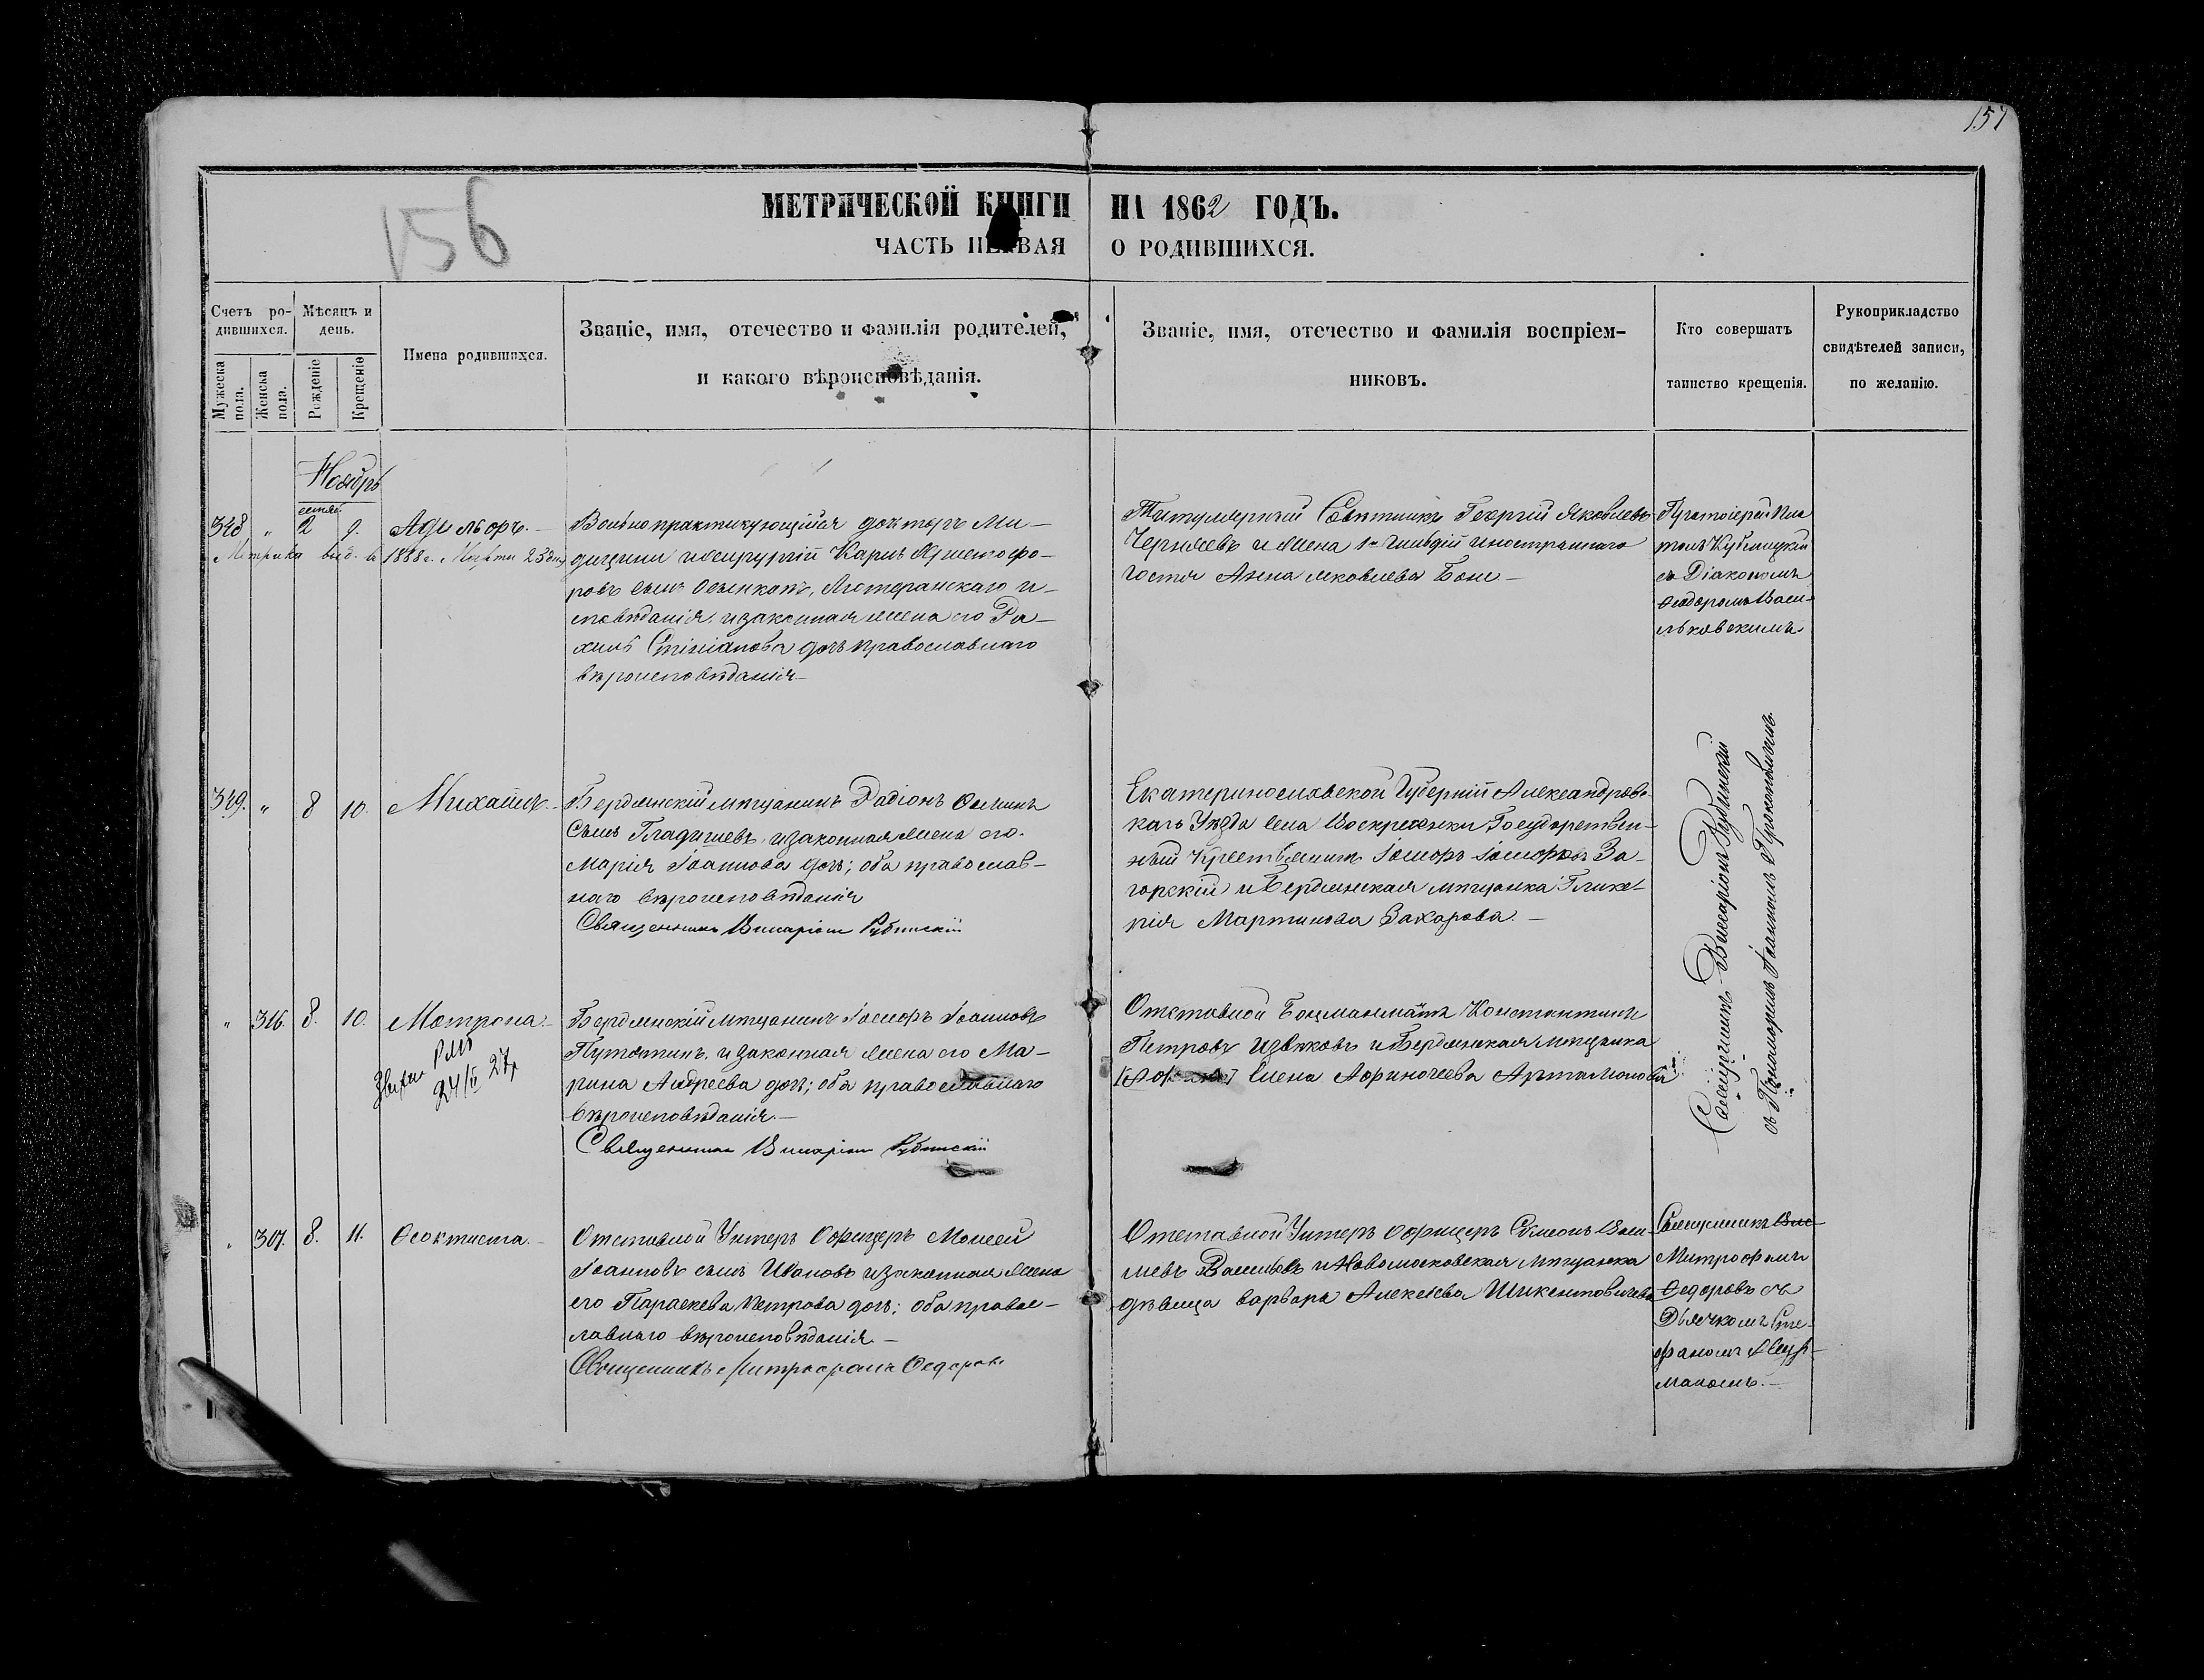 157
156
МЕТРИЧЕСКОЙ КНИГИ НА 1862 ГОДЪ.
ЧАСТЬ ПЕРВАЯ О РОДИВШИХСЯ.
Счетъ ро-
дившихся.
Мужеска пола.
Женска пола.
Мѣсяцъ и
день.
Рожденіе
Крещеніе
Имена родившихся.
Званіе, имя, отечество и фамилія родителей,
и какого вѣроисповѣданія.
Званіе, имя, отечество и фамилія воспріем-
никовъ.
Кто совершатъ
таинство крещенія.
Рукоприкладство
свидѣтелей записи,
по желанію.
Ноябрь
348 " 2 9. Адольфъ.
Метрика выд. въ 1888 г. Марта 23 дня
Вольнопрактикующійся докторъ Ми-
дицины и хирургіи Карлъ Христофо-
ровъ сынъ Лютеранскаго и-
сповѣданія, и законная жена его Ра-
хиль дочь православнаго
вѣроисповѣданія
Титулярный Совѣтникъ Георгій Яковлевъ
Черняевъ и жена 1й Гильдіи иностраннаго
гостя Анна Яковлева
Протоіерей Пла-
тонъ
съ Діакономъ
Феодоромъ Васи-
льковскимъ
349. " 8 10. Михаилъ.
Бердянскій мѣщанинъ Радіонъ
Сынъ Гладишевъ, и законная жена его
Марія Іоаннова дочь; оба православ-
наго вѣроисповѣданія
Священникъ Висаріонъ Рубинскій
Екатеринославской Губерніи Александров-
каго Уѣзда села Воскресенки Государствен-
ный Крестьянинъ Іосифъ Іосифовъ За-
горскій и Бердянская мѣщанка Глике-
рія Мартинова Захарова.
Священникъ Висаріонъ Рубинскій
съ Пономаремъ Іоанномъ Прокоповичемъ.
" 316. 8. 10. Мотрона.
24/II 27
Бердянскій мѣщанинъ Іосифъ Іоанновъ
Путятинъ, и законная жена его Ма-
рина Андреева дочь; оба православнаго
вѣроисповѣданія.
Священникъ Висаріонъ Рубинскій
Отставной Боцманматъ Константинъ
Петровъ Извѣковъ и Бердянская мѣщанка
Елена Афиногеева Артамонова
" 307. 8. 11. Ѳеоктиста.
Отставной Унтеръ Офицеръ Моисей
Іоанновъ сынъ Ивановъ и законная жена
его Параскева Петрова дочь; оба правос-
лавнаго вѣроисповѣданія.
Священникъ Митрофанъ Федоровъ
Отставной Унтеръ Офицеръ Симеонъ Васи-
льевъ Васильевъ и Новомосковская мѣщанка
дѣвица Варвара Алексѣева
Священникъ
Митрофанъ
Федоровъ съ
Дьячкомъ Сте-
фаномъ